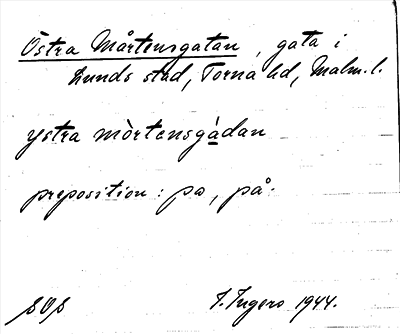 Östra Mårtensgatan, gata i
Lunds stad, Torna hd, Malm. l.
ystra mòrtensgádan
preposition: pa, på.
SOS J. Ingers 1944.